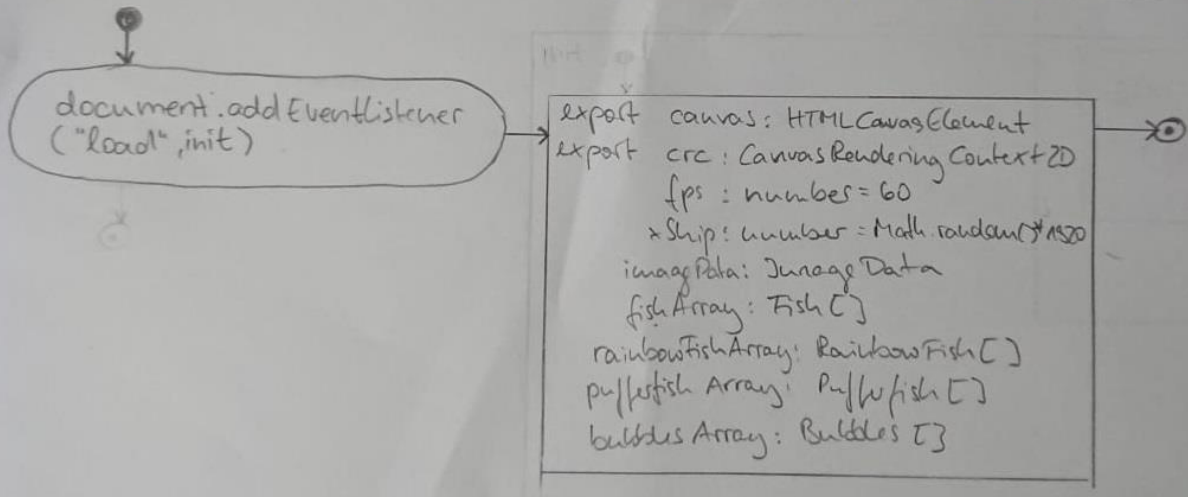 document.addEventListener
("load",init)
export canvas: HTMLCanvasElement
export crc: CanvasRenderingContext2D
fps: number = 60
xShip: number = Math.random()*1920
imageData: ImageData
fishArray: Fish[]
rainbowFishArray: RainbowFish[]
pufferfish Array: Pufferfish[]
bubbles Array: Bubbles []